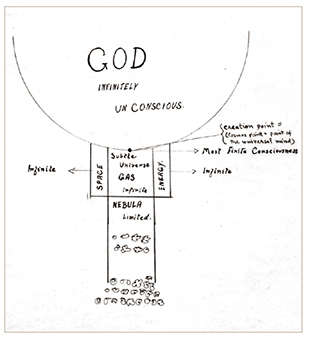 GOD
INFINITELY
UNCONSCIOUS.
{creation point =
(Cosmic point = point of
the universal mind)
Most Finite Consciousness
Infinite
SPACE
Subtle
Universe
GAS
infinite
ENERGY.
Infinite
NEBULA
Limited.